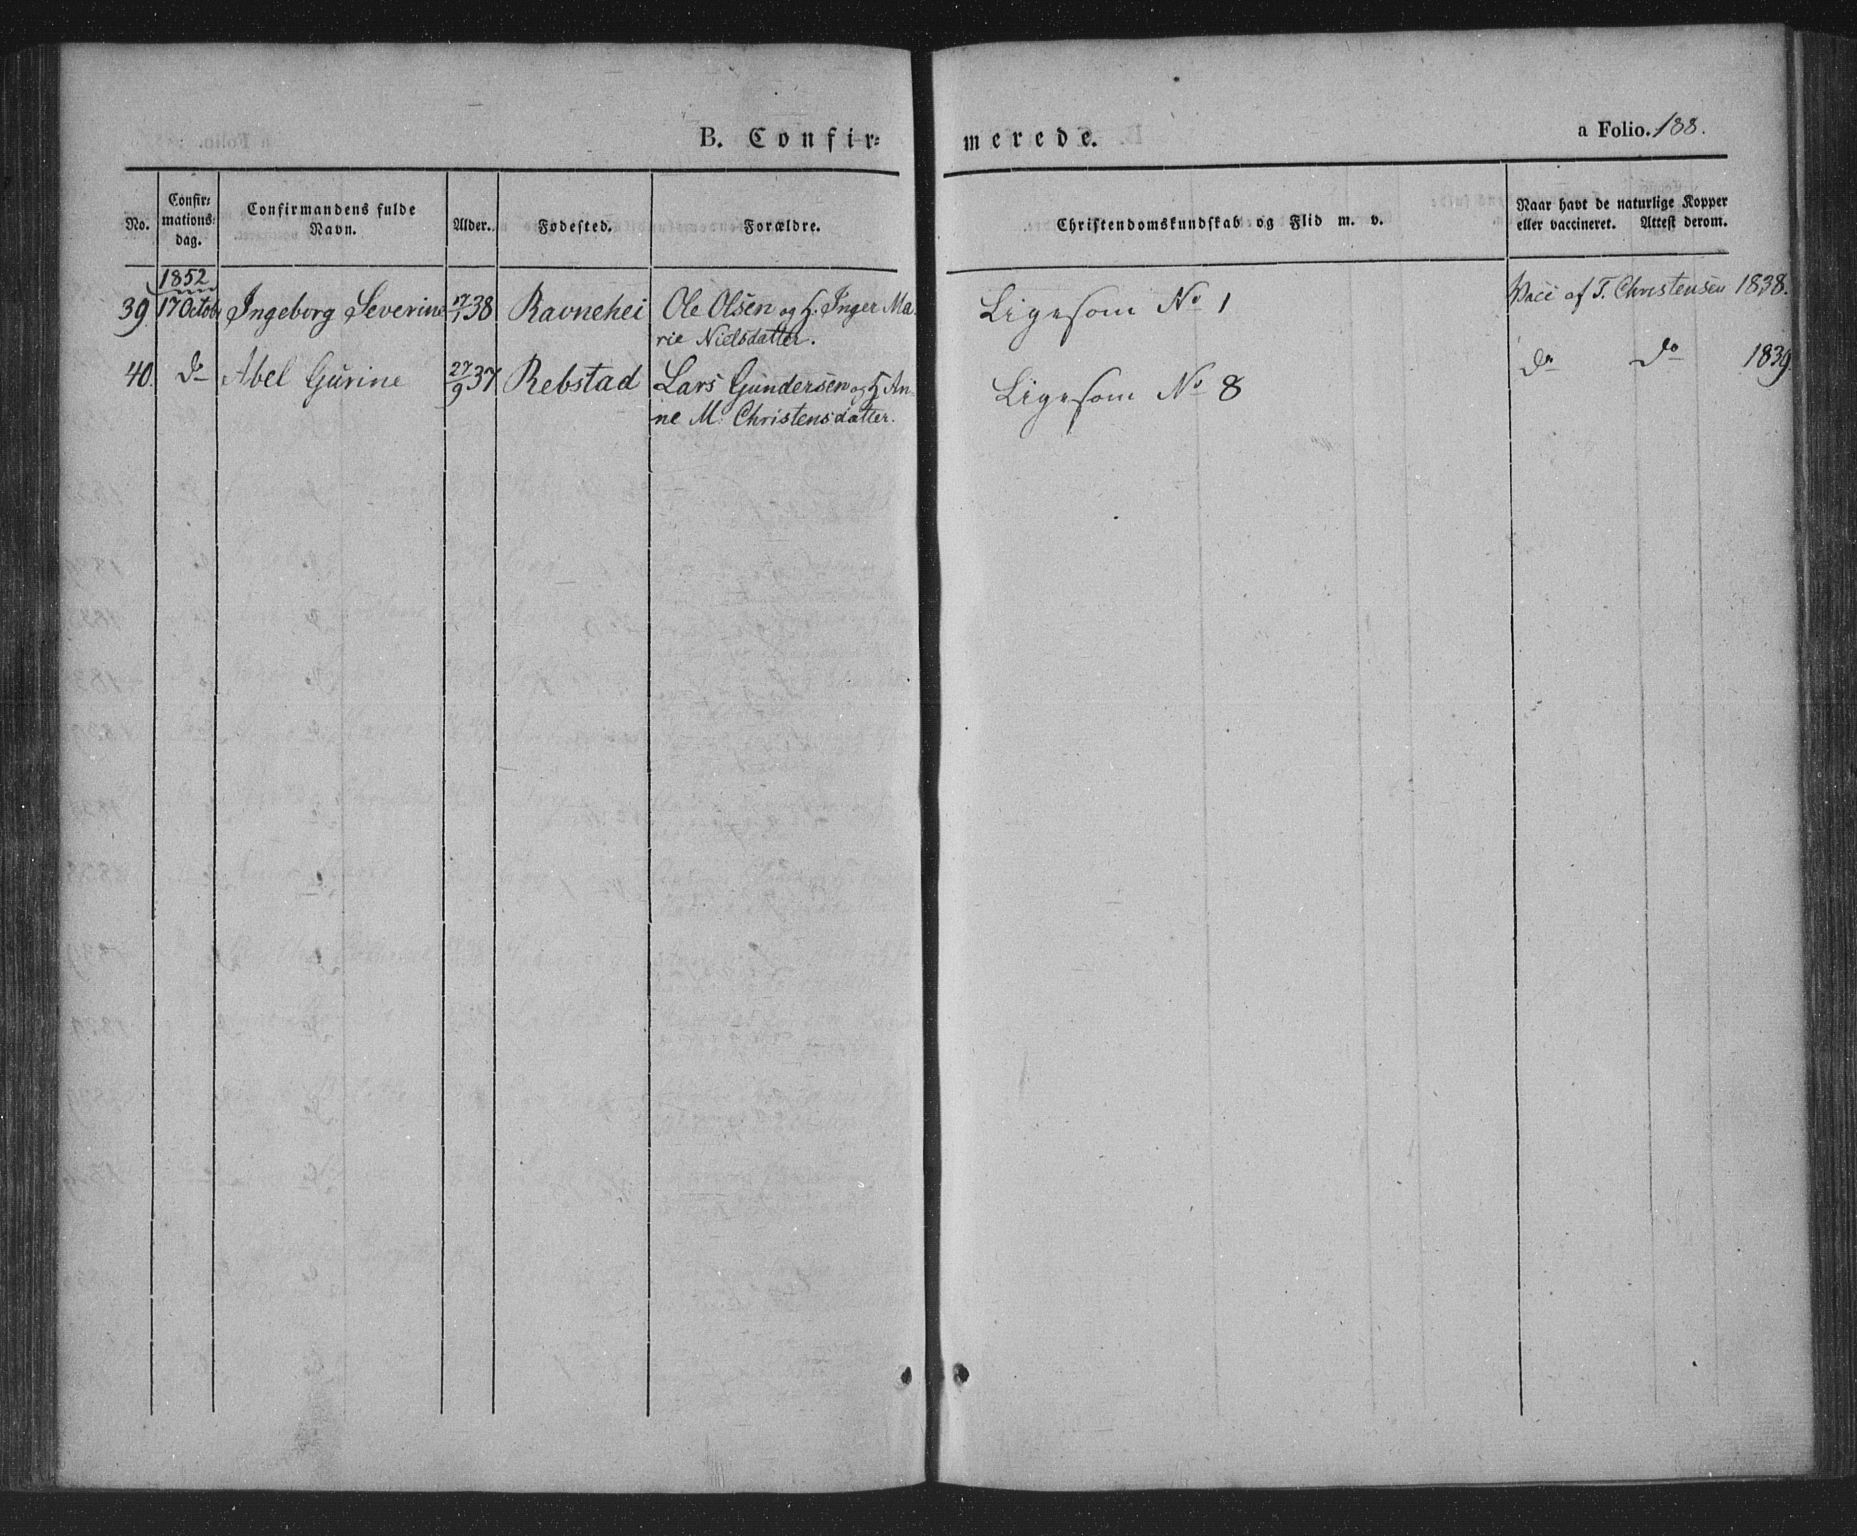 B. Confir=
merede.
a Folio. 188.
No.
Confir=
mations=
dag.
Confirmandens fulde
Navn.
Alder.
Fødested.
Forældre.
Christendomskundskab og Flid m. v.
Naar havt de naturlige Kopper
eller vaccineret. Attest derom.
1852
39. 17 Octobr Ingeborg Severine 17/1 38 Ravnehei Ole Olsen og H. Inger Ma-
rie Nielsdatter.
Ligesom No 1
Vacc af T. Christensen 1838.
40. do Abel Gurine 27/9 37 Rebstad Lars Gundersen og H An-
ne M. Christensdatter.
Ligesom No 8
do do 1839.